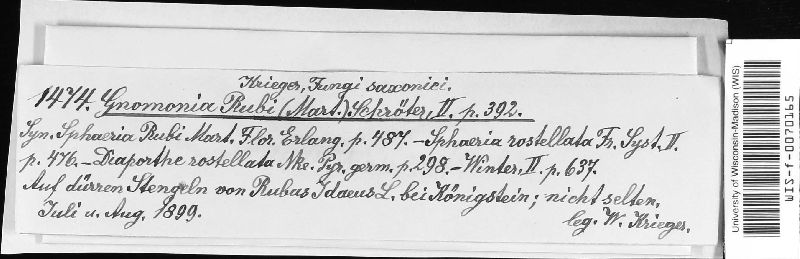 Krieger, Fungi saxonici.
1474. Gnomonia Rubi (Mart.) Schröter, II. p. 392.
Syn. Sphaeria Rubi Mart. Flor. Erlang. p. 487. – Sphaeria rostellata Fr. Syst. II.
p. 476. – Diaporthe rostellata Nke. Pyr. germ. p. 298. – Winter, II. p. 637.
Auf dürren Stengeln von Rubus Idaeus L. bei Königstein; nicht selten.
Juli u. Aug. 1899.
leg. W. Krieger.
University of Wisconsin-Madison (WIS)
WIS-f-0070165